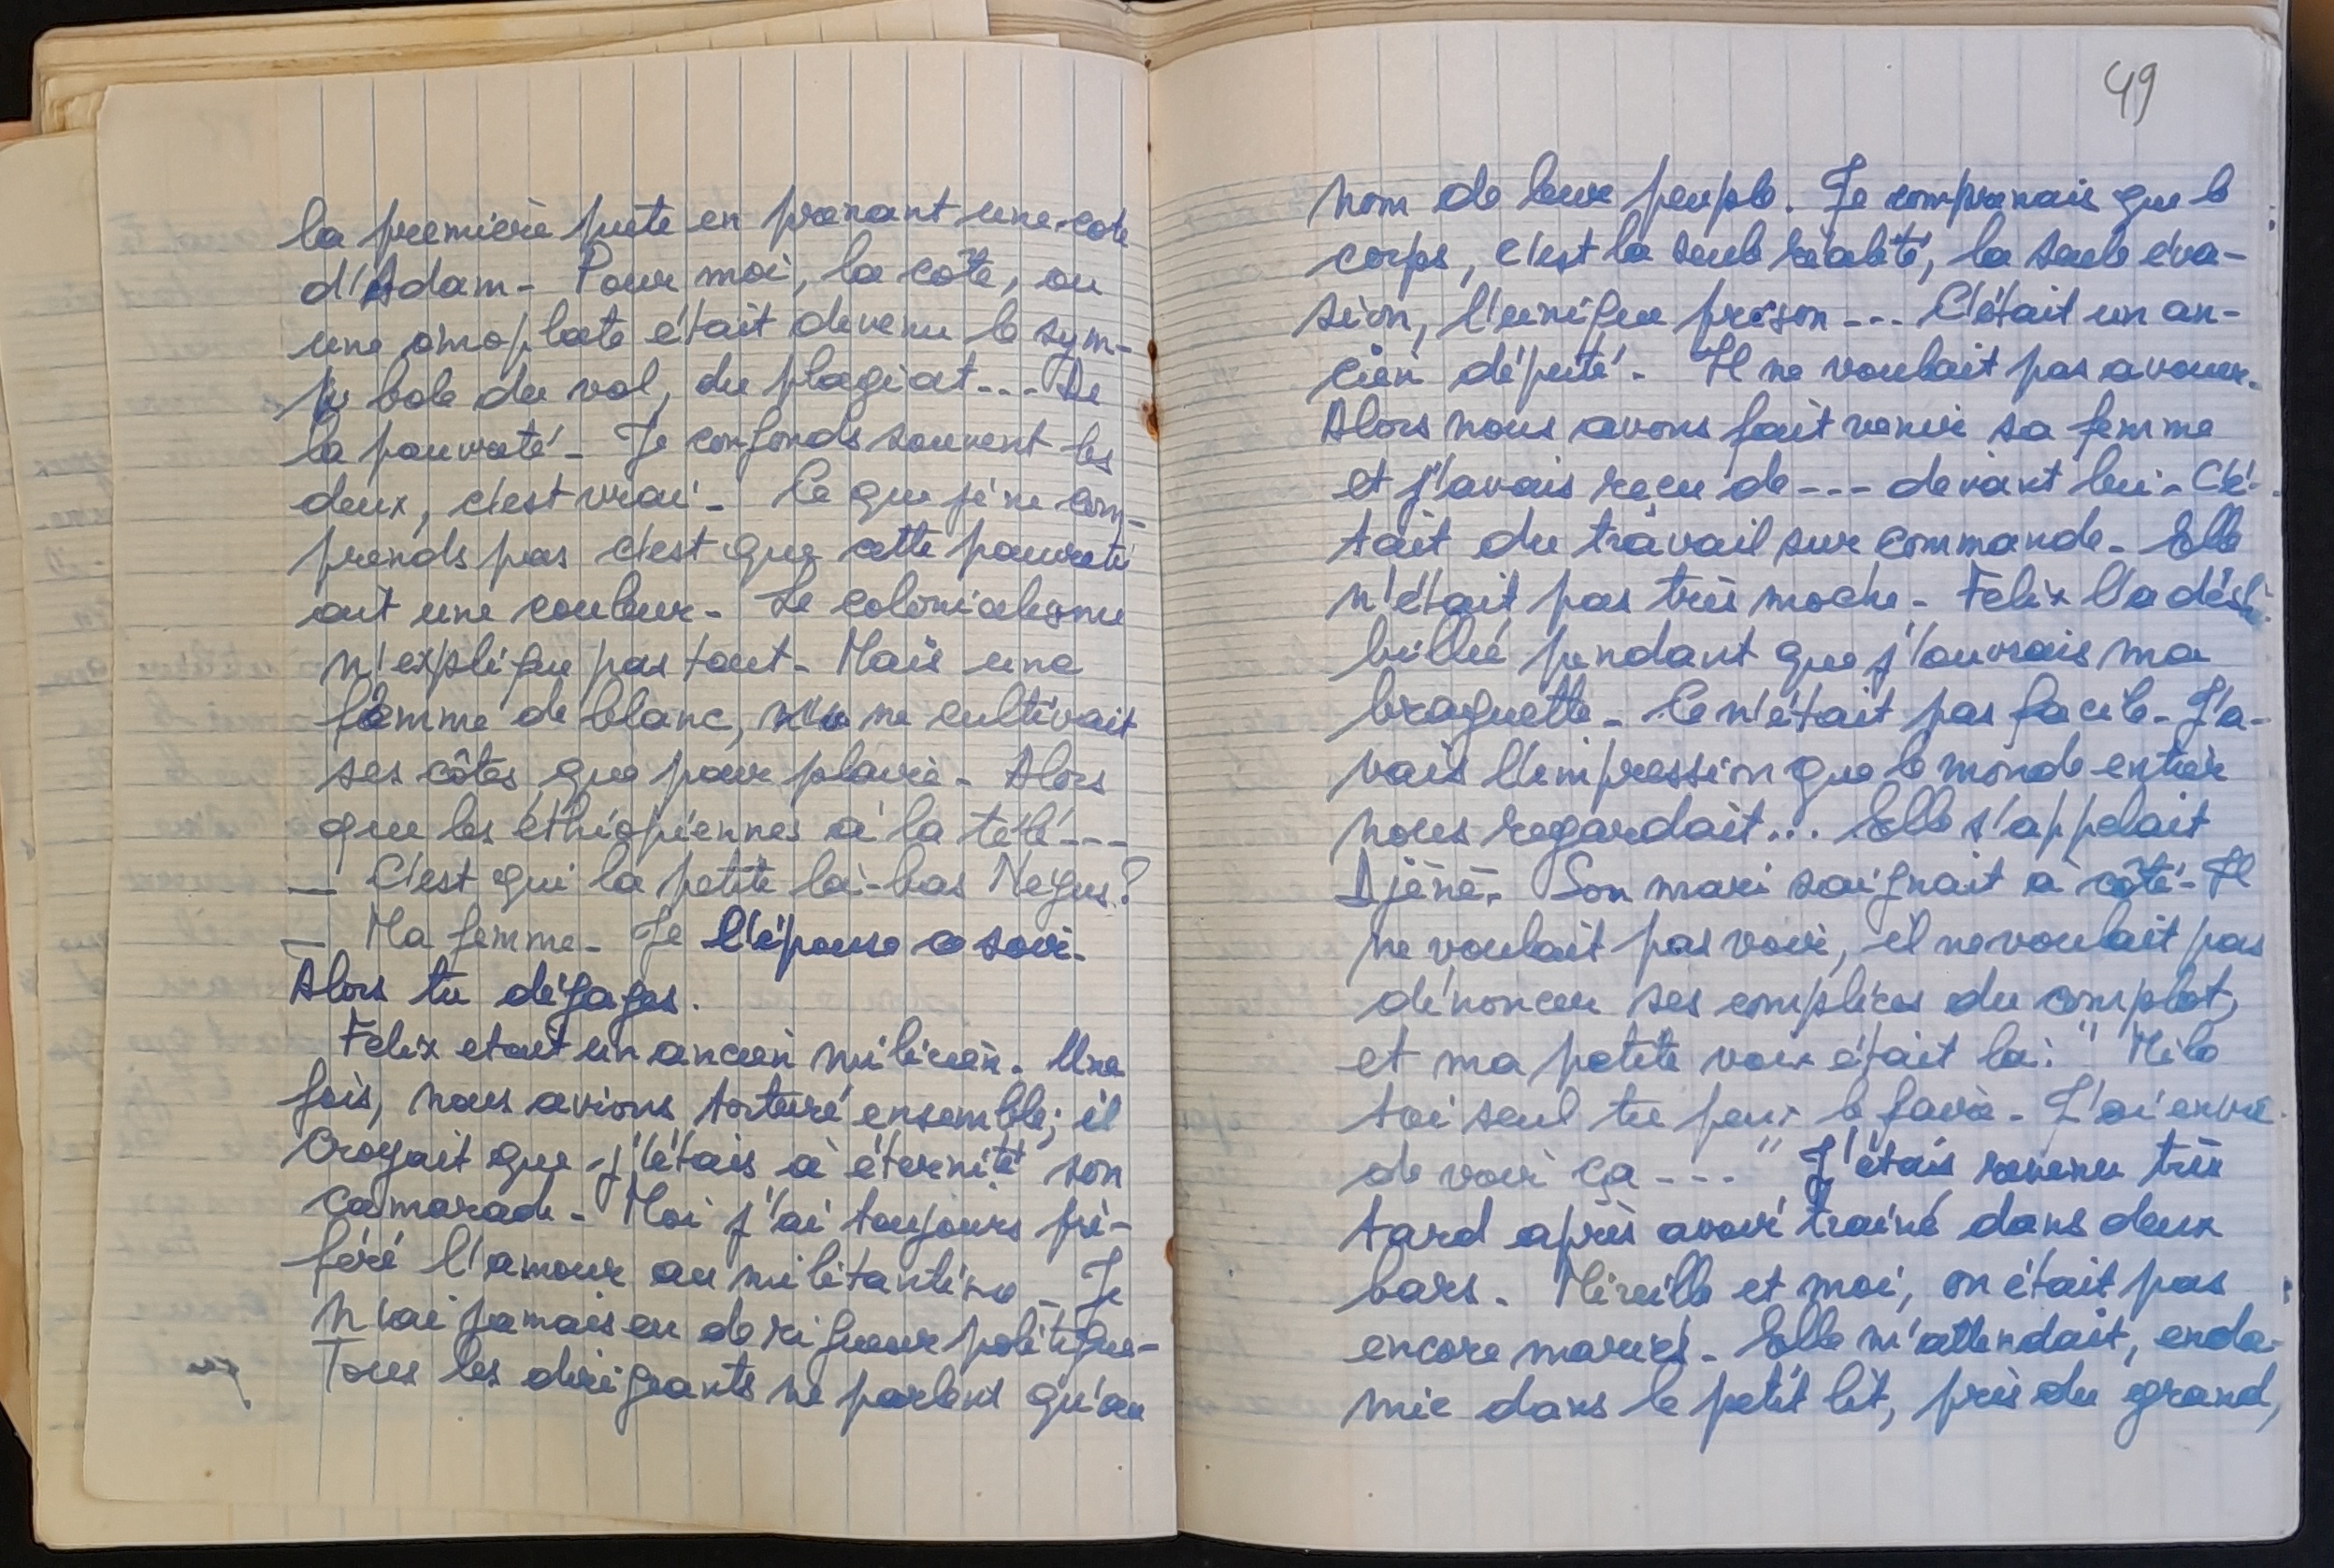 la première pute en prenant une cote
d'Adam - Pour moi, la côte, ou
une omoplate était devenu le sym-
bole du vol, du plagiat--- De
la pauvreté - Je confonds souvent les
deux, c'est vrai - Ce que je ne com-
prends pas c'est que cette pauvreté
ait une couleur - Le colonialisme
n'explique pas tout - Mais une
femme de blanc, ne cultivait
ses côtes que pour plaire - Alors
que les éthiopiennes à la télé---
— C'est qui la petite là-bas Negus?
— Ma femme - Je l'épouse ce soir.
Alors tu dégages.
Felix etait un ancien milicien. Une
fois, nous avions torturé ensemble; il
croyait que j'étais à éternité son
camarade - Moi j'ai toujours pré-
féré l'amour au militantisme - Je
n'ai jamais eu de rigueur politique -
Tous les dirigeants ne parlent qu'au
49
nom de leur peuple. Je comprenais que le
corps, c'est la seule réalité, la seule éva-
sion, l'unique prison --- C'était un an-
cien député - Il ne voulait pas avouer.
Alors nous avons fait venir sa femme
et j'avais reçu de --- devant lui - C'é-
tait du travail sur commande - Elle
n'était pas très moche - Felix l'a désha-
billée pendant que j'ouvrais ma
braguette - Ce n'était pas facile - J'a-
vais l'impression que le monde entier
nous regardait... Elle s'appelait
Djènè - Son mari saignait à côté - Il
ne voulait pas voir, il ne voulait pas
dénoncer ses complices du complot,
et ma petite voix était là: "Milo
toi seul tu peux le faire - J'ai envie
de voir ça ---" J'étais revenu très
tard après avoir traîné dans deux
bars. Mireille et moi, on était pas
encore mariés - Elle m'attendait, endor-
mie dans le petit lit, près du grand,